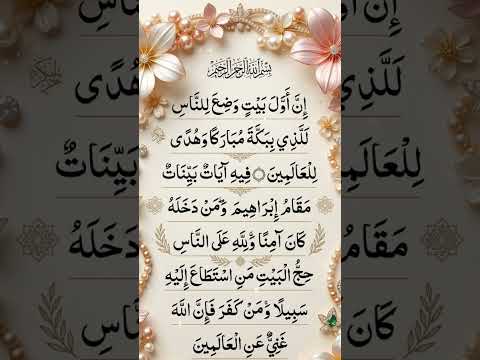 بسم الله الرحمن الرحيم
إِنَّ أَوَّلَ بَيْتٍ وَضِعَ لِلنَّاسِ
لَلَّذِي بِبَكَّةَ مُبَارَكًا وَهُدًى
لِلْعَالَمِينَ ۝ فِيهِ آيَاتٌ بَيِّنَاتٌ
مَقَامُ إِبْرَاهِيمَ وَمَنْ دَخَلَهُ
كَانَ آمِنًا وَلِلَّهِ عَلَى النَّاسِ
حِجُّ الْبَيْتِ مَنِ اسْتَطَاعَ إِلَيْهِ
سَبِيلًا وَمَنْ كَفَرَ فَإِنَّ اللَّهَ
غَنِيٌّ عَنِ الْعَالَمِينَ